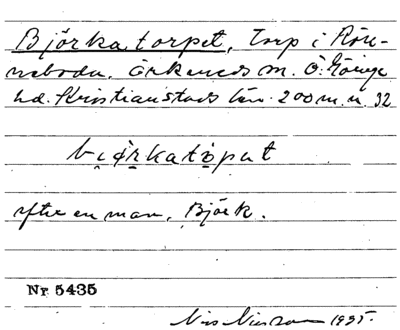 Björkatorpet, Torp i Rön-
neboda, Örkeneds sn. Ö. Göinge
hd. Kristianstads län. 200 m. n. 32
efter en man, Björk.
Nr 5435
Nils Nilsson 1935.